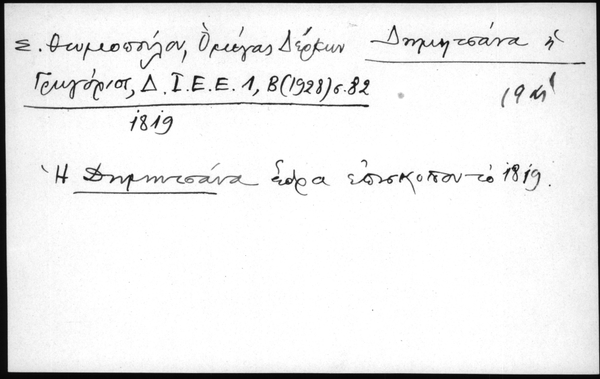 Σ. Θωμοπούλου, Ὁ μέγας Δέρκων Δημητσάνα ἡ
Γρηγόριος, Δ.Ι.Ε.Ε. 1, Β(1928) σ. 82
19
1819
Ἡ Δημητσάνα ἕδρα ἐπισκόπου τὸ 1819.